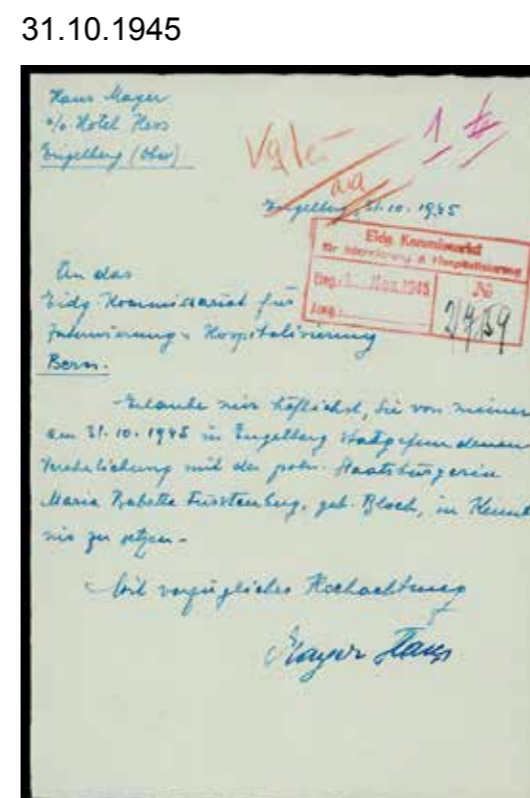 31.10.1945
Hans Mayer
c/o Hotel Hess
Engelberg (Obw)
1
Engelberg, 31.10.1945
Eidg. Kommissariat
für Internierung & Hospitalisierung
Eing.: Nov. 1945
№
Ausg.:
An das
Eidg Kommissariat für
Internierung u Hospitalisierung
Bern.
Erlaube mir höflichst, Sie von meiner
am 31.10.1945 in Engelberg stattgefundenen
Verehelichung mit der poln. Staatsbürgerin
Maria Babette Fürstenberg, geb. Bloch, in Kennt
nis zu setzen.-
Mit vorzüglicher Hochachtung
Mayer Hans